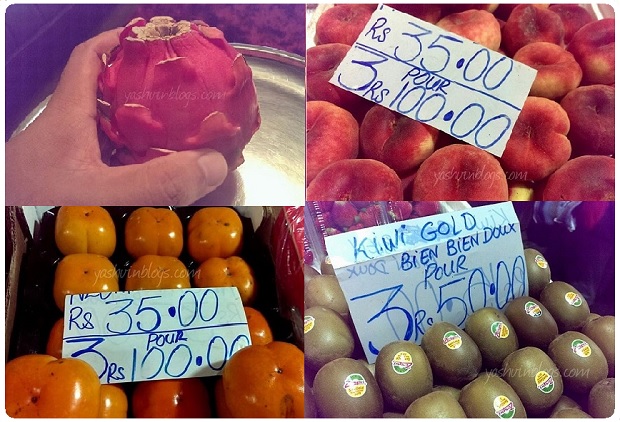 yashvinblogs.com
Rs 35.00
POUR
3 Rs 100.00
yashvinblogs.com
yashvinblogs.com
Rs 35.00
POUR
3 Rs 100.00
KiWi GOLD
BiEN BiEN DOUX
POUR
3 Rs 50.00
yashvinblogs.com